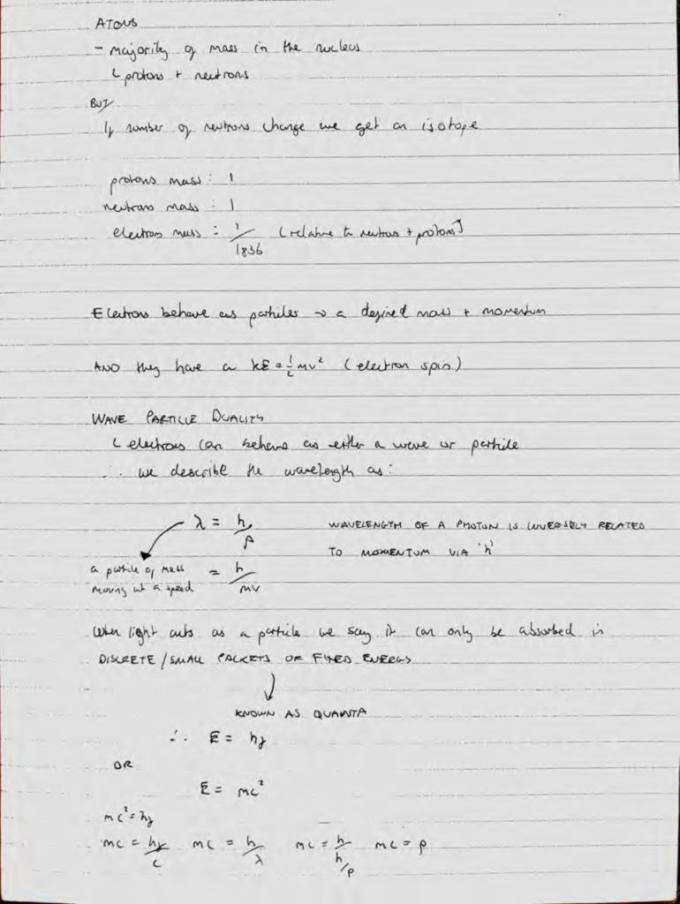 ATOMS
- majority of mass in the nucleus
↳ protons + neutrons
BUT
If number of neutrons change we get an isotope
protons mass : 1
neutrons mass : 1
electron mass : 1/1836 (relative to neutron + proton]
Electrons behave as particles → a defined mass + momentum
AND they have a KE = ½mv² (electron spin)
WAVE PARTICLE DUALITY
↳ electrons can behave as either a wave or particle
∴ we describe the wavelength as:
λ = h/p WAVELENGTH OF A PHOTON IS INVERSELY RELATED
TO MOMENTUM VIA 'h'
a particle of mass = h/mv
moving at a speed
When light acts as a particle we say it can only be absorbed in
DISCRETE / SMALL PACKETS OF FIXED ENERGY
KNOWN AS QUANTA
∴ E = hf
OR
E = mc²
mc² = hf
mc = hf/c mc = h/λ mc = h/h/p mc = p